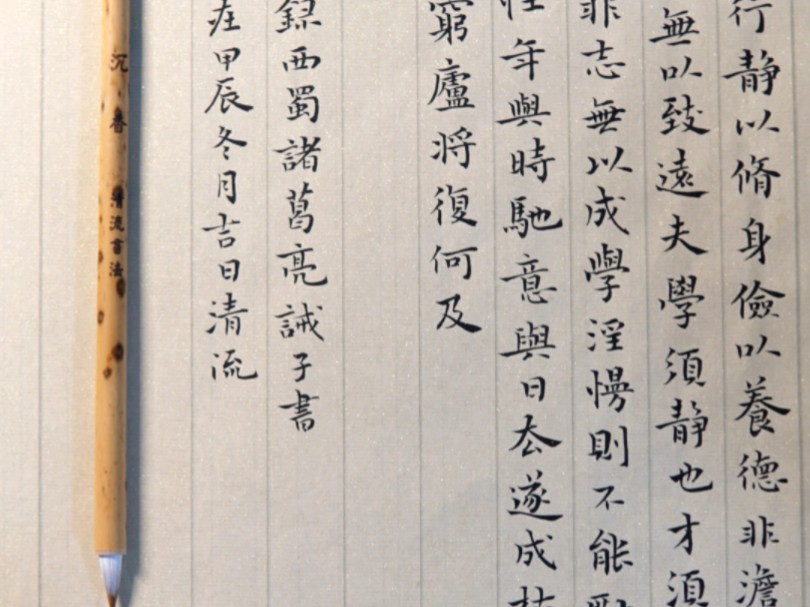 行靜以脩身儉以養德非澹
無以致遠夫學須靜也才須
非志無以成學淫慢則不能
年與時馳意與日去遂成枯
窮廬將復何及
錄西蜀諸葛亮誡子書
在甲辰冬月吉日清流
沉香
清流書法